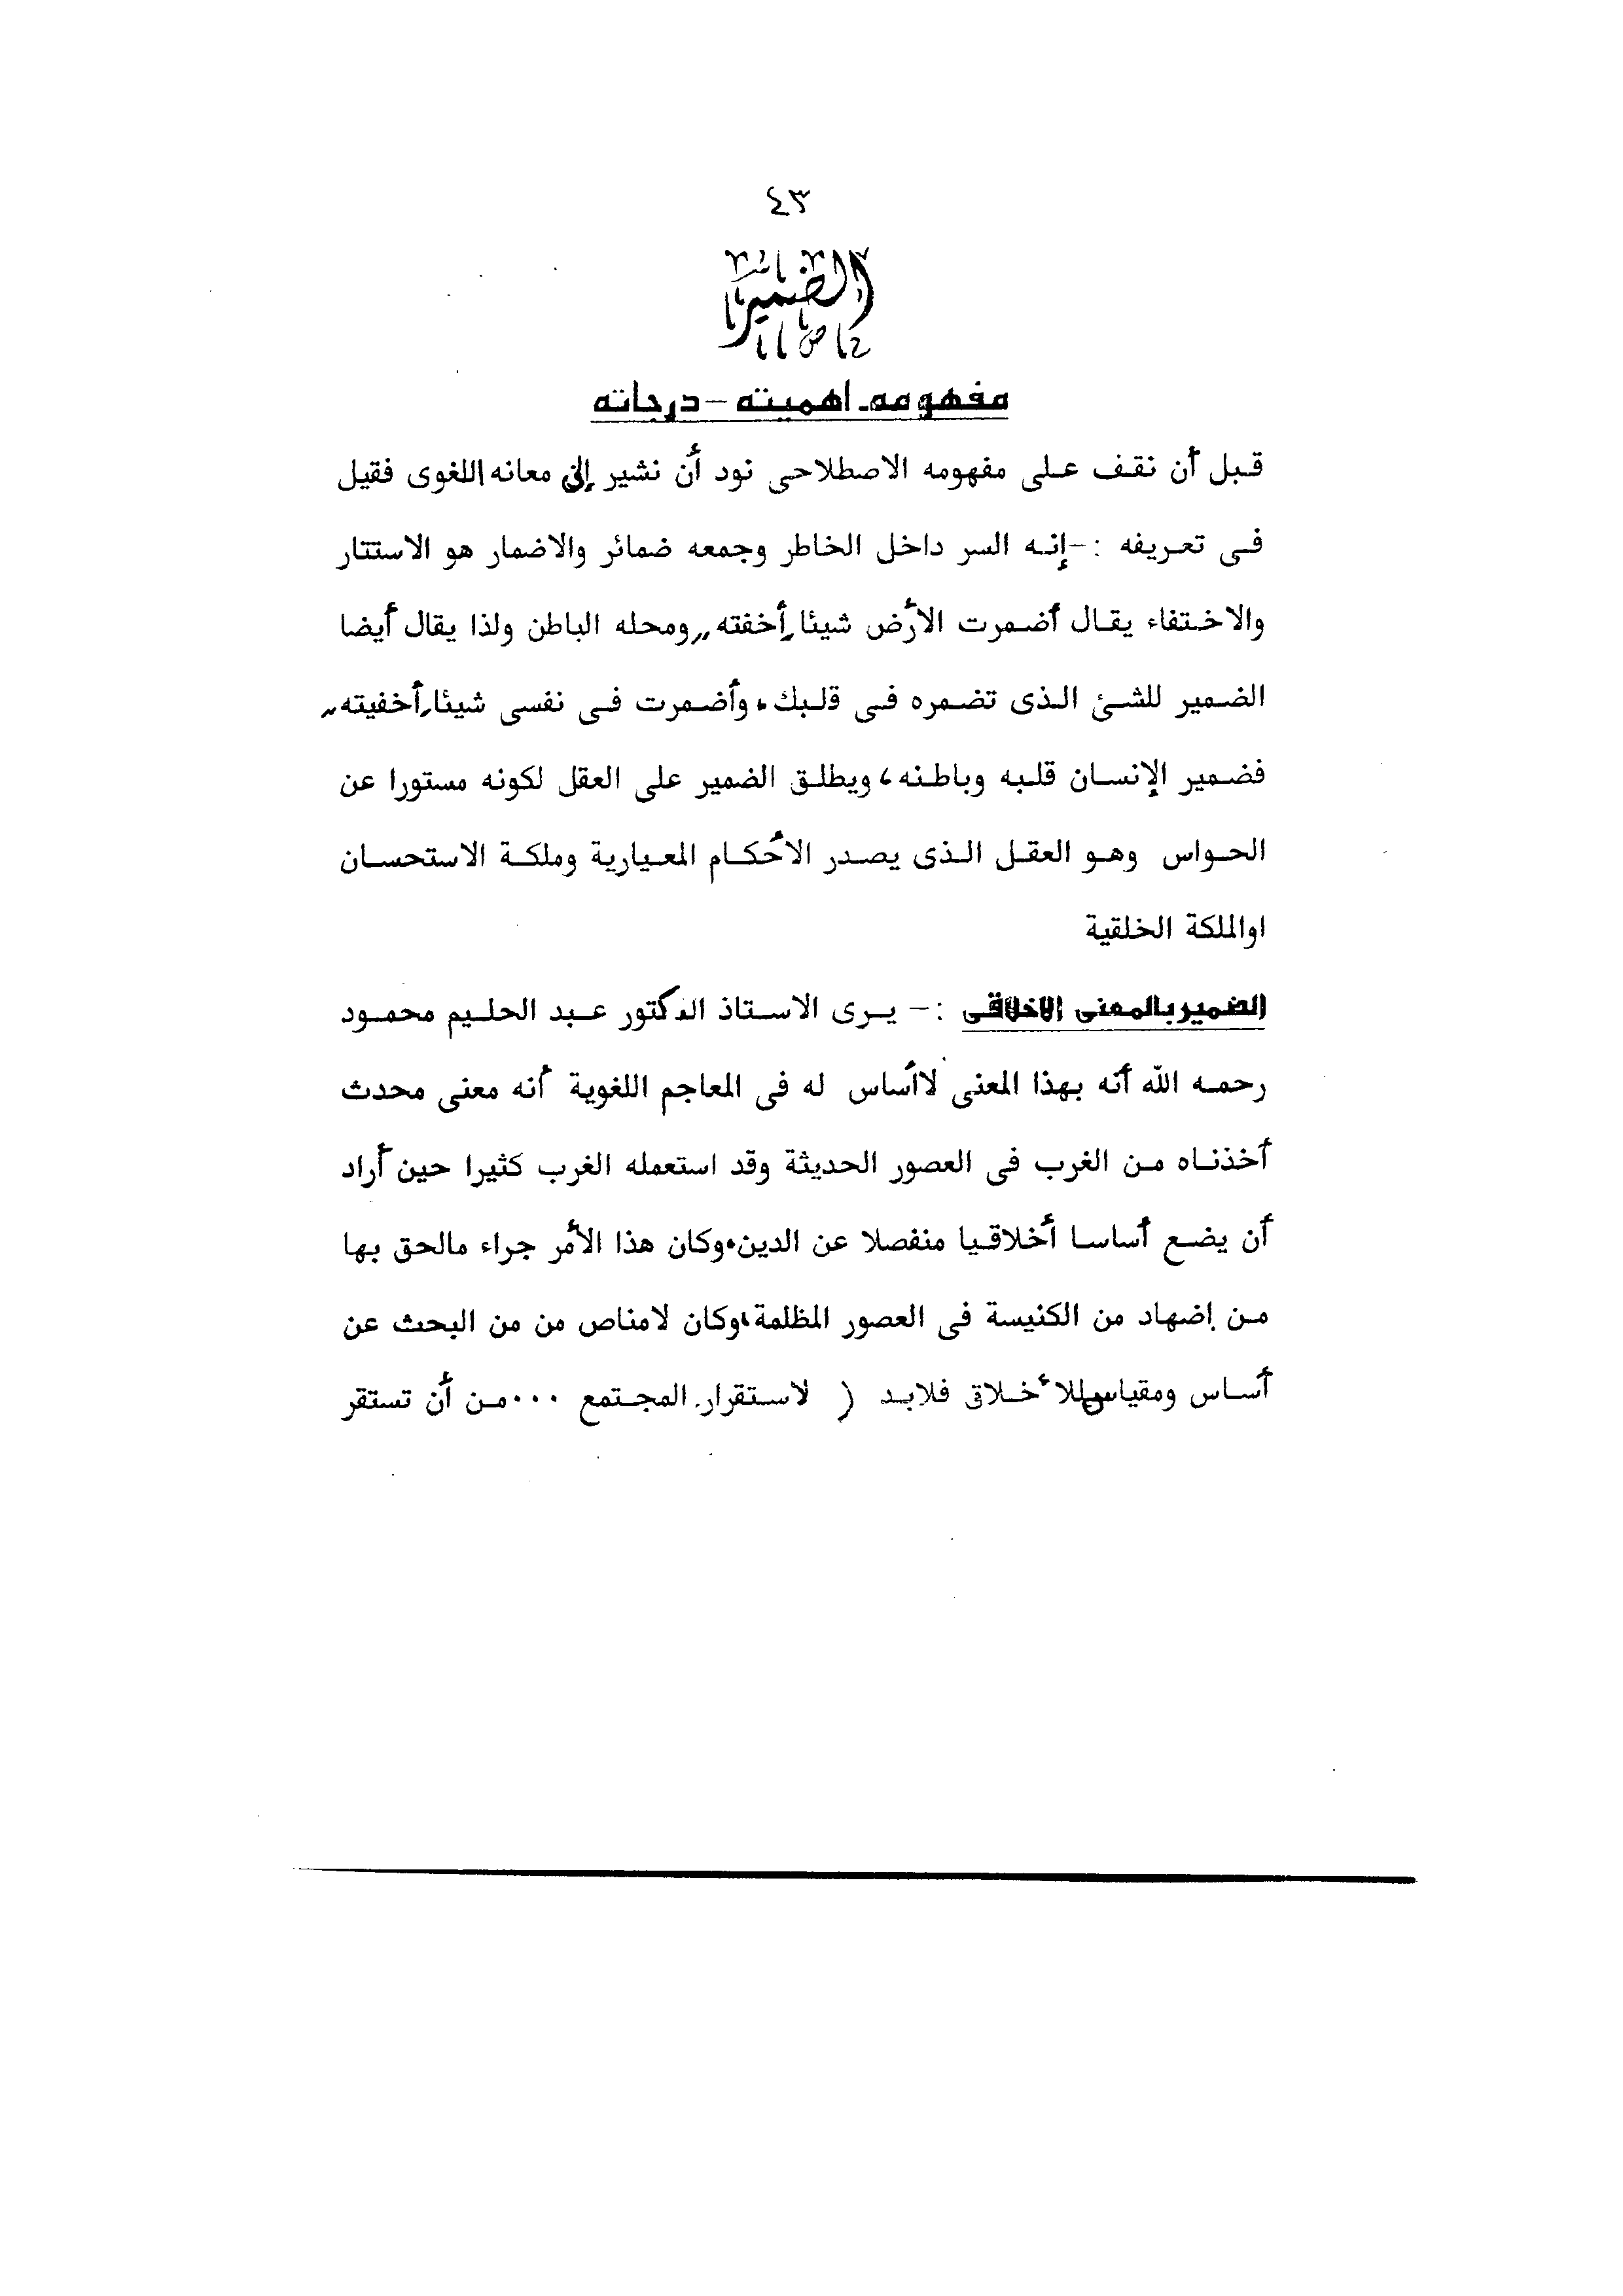 ٤٣
الضمير
مفهومه - اهميته - درجاته
قبل أن نقف على مفهومه الاصطلاحى نود أن نشير إلى معانه اللغوى فقيل
فى تعريفه :- إنه السر داخل الخاطر وجمعه ضمائر والاضمار هو الاستتار
والاختفاء يقال أضمرت الأرض شيئا ,,أخفته,, ومحله الباطن ولذا يقال أيضا
الضمير للشئ الذى تضمره فى قلبك، وأضمرت فى نفسى شيئا ,,أخفيته,,
فضمير الإنسان قلبه وباطنه، ويطلق الضمير على العقل لكونه مستورا عن
الحواس وهو العقل الذى يصدر الأحكام المعيارية وملكة الاستحسان
اوالملكة الخلقية
الضمير بالمعنى الاخلاقى :- يرى الاستاذ الدكتور عبد الحليم محمود
رحمه الله أنه بهذا المعنى لاأساس له فى المعاجم اللغوية أنه معنى محدث
أخذناه من الغرب فى العصور الحديثة وقد استعمله الغرب كثيرا حين أراد
أن يضع أساسا أخلاقيا منفصلا عن الدين٠وكان هذا الأمر جراء مالحق بها
من إضهاد من الكنيسة فى العصور المظلمة،وكان لامناص من من البحث عن
أساس ومقياس للأخلاق فلابد ( لاستقرار المجتمع ٠٠٠من أن تستقر